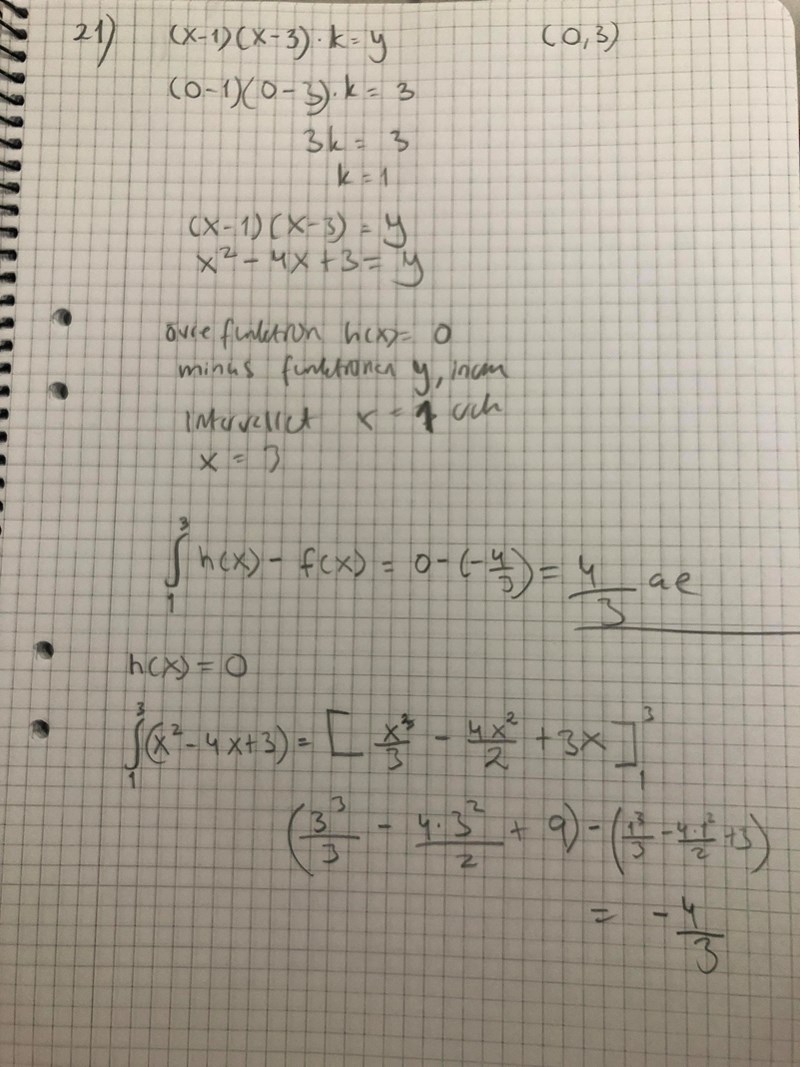 21) (x-1)(x-3)·k = y (0,3)
(0-1)(0-3)·k = 3
3k = 3
k = 1
(x-1)(x-3) = y
x² - 4x + 3 = y
övre funktion h(x) = 0
minus funktionen y, inom
intervallet x = 1 och
x = 3
∫₁³ h(x) - f(x) = 0 - (-4/3) = 4/3 ae
h(x) = 0
∫₁³ (x² - 4x + 3) = [x³/3 - 4x²/2 + 3x]₁³
(3³/3 - 4·3²/2 + 9) - (1³/3 - 4·1²/2 + 3)
= -4/3